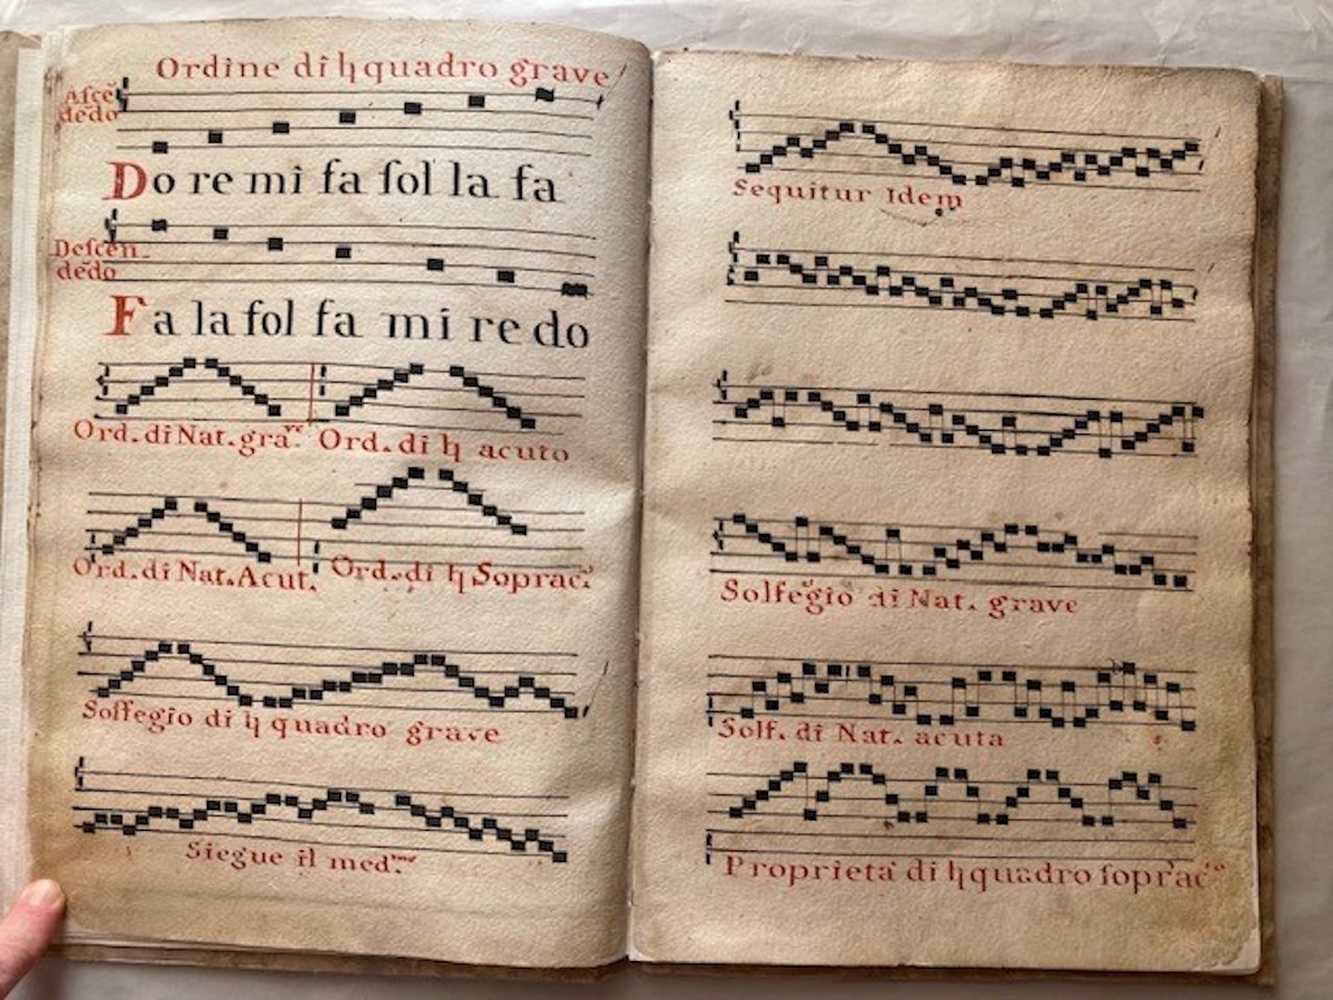 Ordine di ♮quadro grave
Asce˜
de˜do
Do re mi fa sol la fa
Descen-
de˜do
Fa la sol fa mi re do
Ord. di Nat. gra.ve Ord. di ♮ acuto
Ord. di Nat. Acut. Ord. di ♮ Soprac.
Solfegio di ♮ quadro grave
Siegue il med.mo
Sequitur Idem
Solfegio di Nat. grave
Solf. di Nat. acuta
Proprieta di ♮quadro soprac